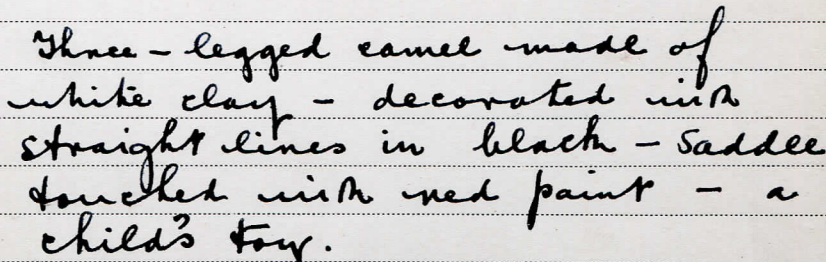 Three - legged camel made of
white clay - decorated with
straight lines in black - Saddle
touched with red paint - a
child's toy.